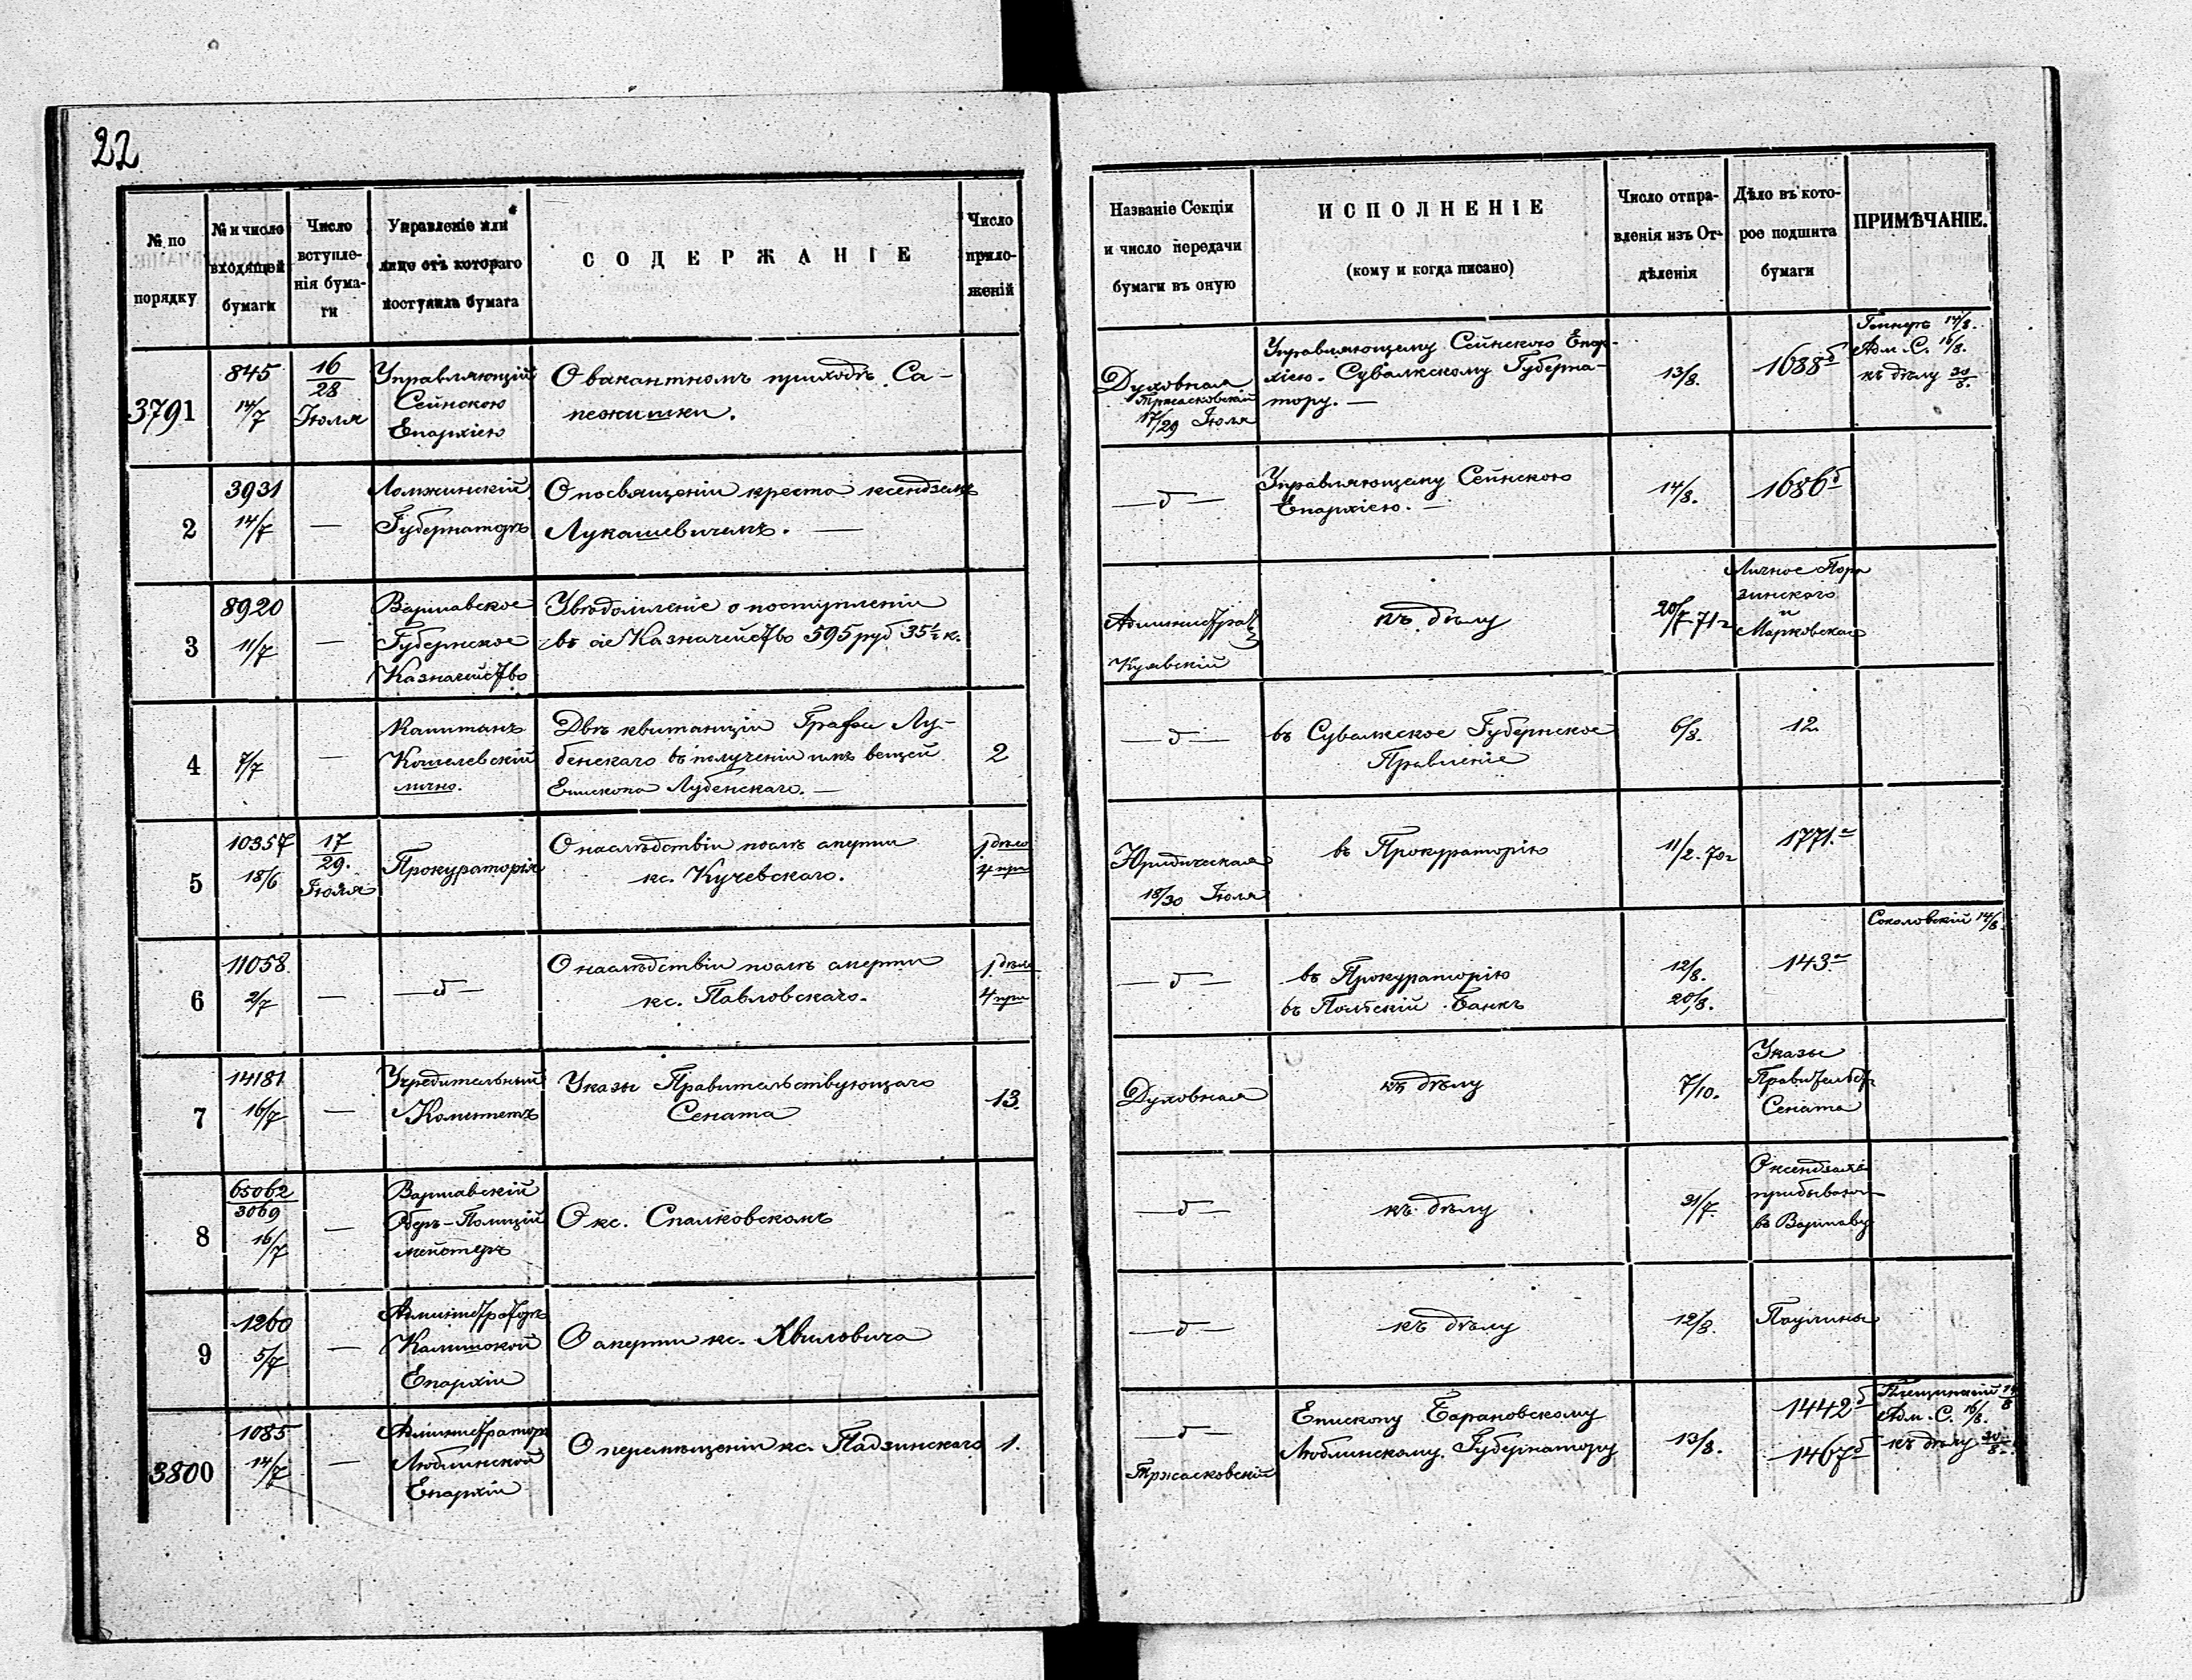 22
№ по порядку
№ и число входящей бумаги
Число вступленія бумаги
Управленіе или лице отъ котораго поступила бумага
СОДЕРЖАНІЕ
Число приложеній
Названіе Секціи и число передачи бумаги въ оную
ИСПОЛНЕНІЕ
(кому и когда писано)
Число отправленія изъ Отдѣленія
Дѣло въ которое подшита бумаги
ПРИМѢЧАНІЕ.
3791
845
14/7
16/28 Іюля
Управляющій
Сейнскою
Епархіею
О вакантномъ приходѣ Са-
пежишки.
Духовная
Тржасковскій
17/29 Іюля
Управляющему Сейнскою Епар-
хіею. Сувалкскому Губерна-
тору. —
13/8.
1688б
14/8.
Адм. С. 16/8.
къ дѣлу 20/8.
2
3931
14/7
—
Ломжинскій
Губернаторъ
О посвященіи креста ксендземъ
Лукашевичемъ. —
— д —
Управляющему Сейнскою
Епархіею. —
14/8.
1686б
3
8920
11/7
—
Варшавское
Губернское
Казначейство
Увѣдомленіе о поступленіи
въ сіе Казначейство 595 руб 35½ к.
Администрат
Куявскій
къ дѣлу
20/7 71г
Личное
и
Марковскаго
4
7/7
—
Капитанъ
Кошелевскій
лично.
Двѣ квитанціи Графа Лу-
бенскаго въ полученіи имъ вещей
Епископа Лубенскаго. —
2
— д —
въ Сувалкское Губернское
Правленіе
6/8.
12
5
10357
18/6
17/29. Іюля
Прокураторія
О наслѣдствіи послѣ смерти
кс. Кучевскаго.
1 дѣло
4 при
Юридическая
18/30 Іюля
въ Прокураторію
11/2. 70г
1771.а
6
11058
2/7
—
— д —
О наслѣдствіи послѣ смерти
кс. Павловскаго.
1 дѣло
4 при
— д —
въ Прокураторію
въ Польскій Банкъ
12/8.
20/8.
143а
Соколовскій 14/8.
7
14181
16/7
—
Учредительный
Комитетъ
Указы Правительствующаго
Сената
13.
Духовная
къ дѣлу
7/10.
Указы
Правительст
Сената
8
65062/3069
16/7
—
Варшавскій
Оберъ-Полицій
мейстеръ
О кс. Спалковскомъ
— д —
къ дѣлу
31/7.
О ксендзахъ
прибываю
въ Варшаву
9
1260
5/7
—
Администраторъ
Калишской
Епархіи
О смерти кс. Хвиловича
— д —
къ дѣлу
12/8.
Паулины
3800
1085
14/7
—
Администраторъ
Люблинской
Епархіи
О перемѣщеніи кс. Падзинскаго
1.
— д —
Тржасковскій
Епископу Барановскому
Люблинскому Губернатору
13/8.
1442б
1467б
Адм. С. 16/8.
къ дѣлу 20/8.